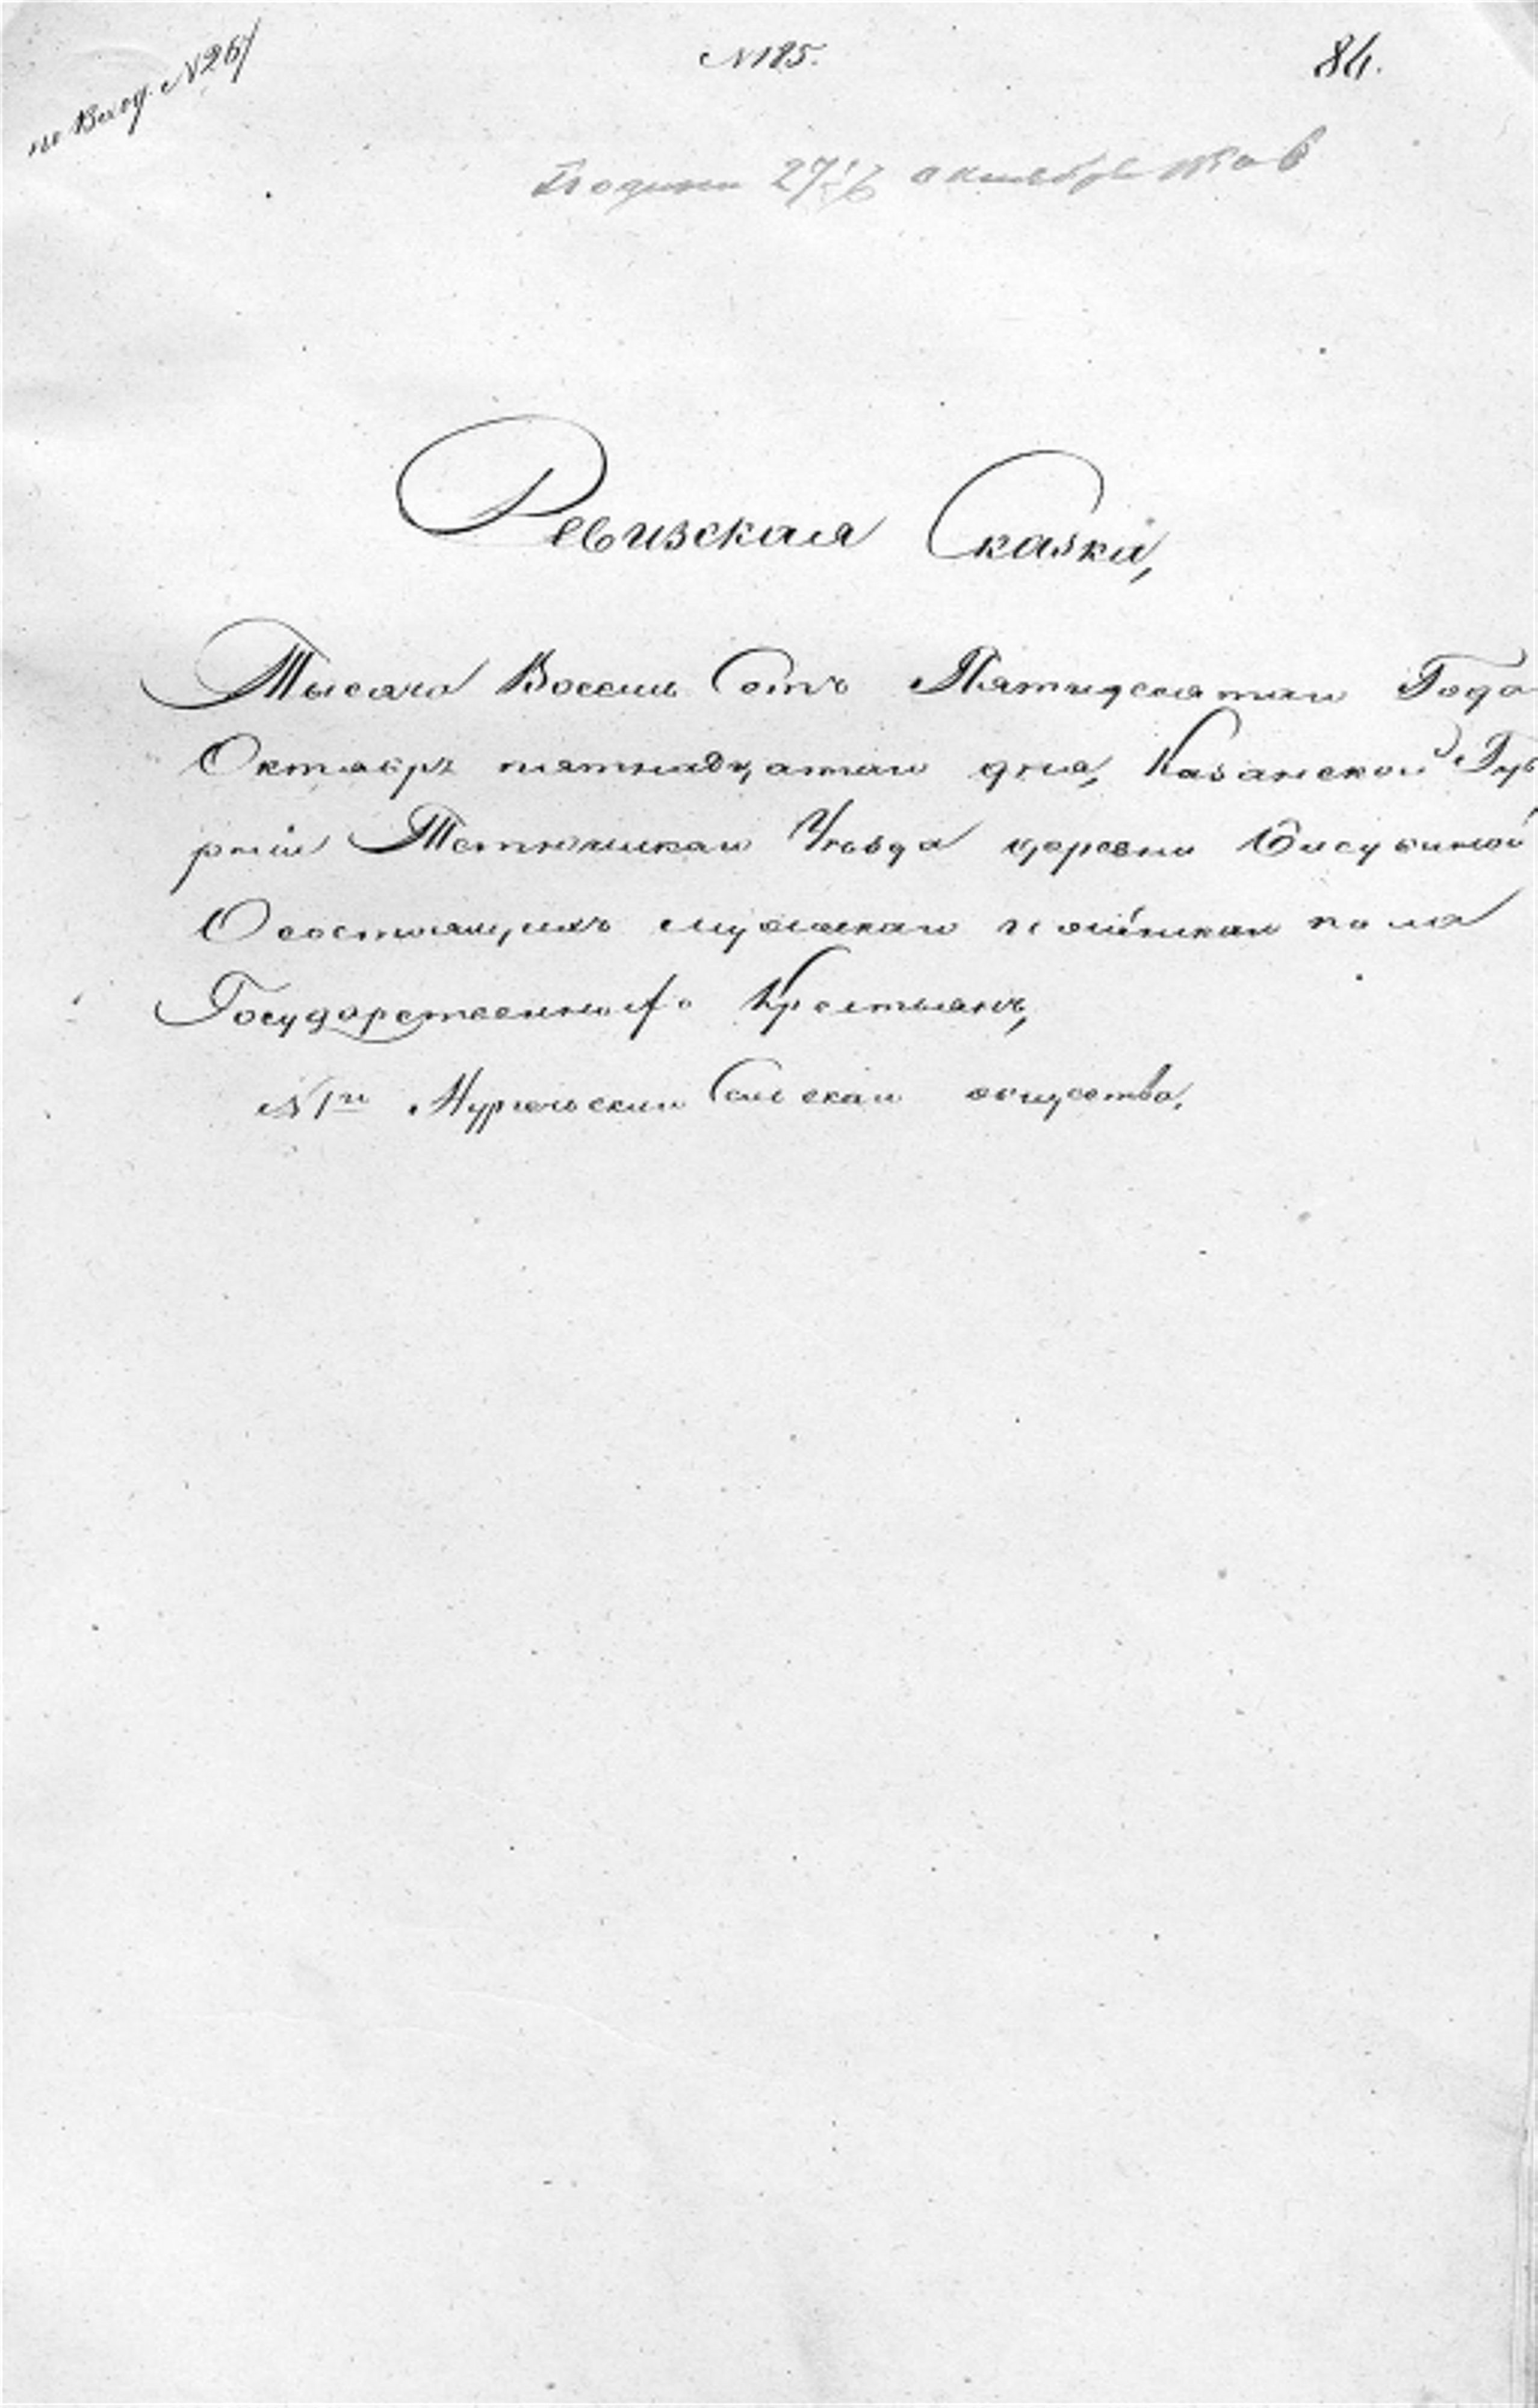 по Вход. №26
№185.
84.
27 октября
Ревизская Сказка,
Тысяча Восемь Сотъ Пятидесятаго Года
Октябрь пятнадцатаго дня, Казанской Губ
рніи Тетюшскаго Уѣзда деревни
О состоящихъ мужскаго и женскаго пола
Государственныхъ Крестьянъ,
Сельскаго общества,